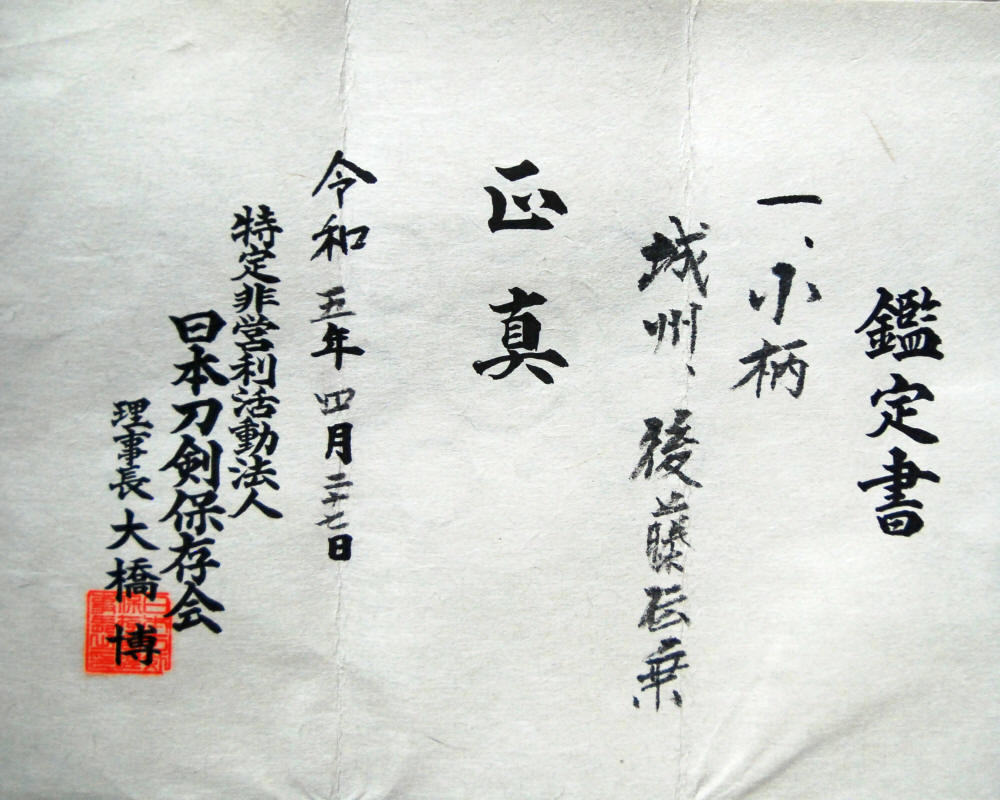 鑑定書
一、小柄
城州、後藤伝乗
正真
令和五年四月二十七日
特定非営利活動法人
日本刀剣保存会
理事長 大橋 博